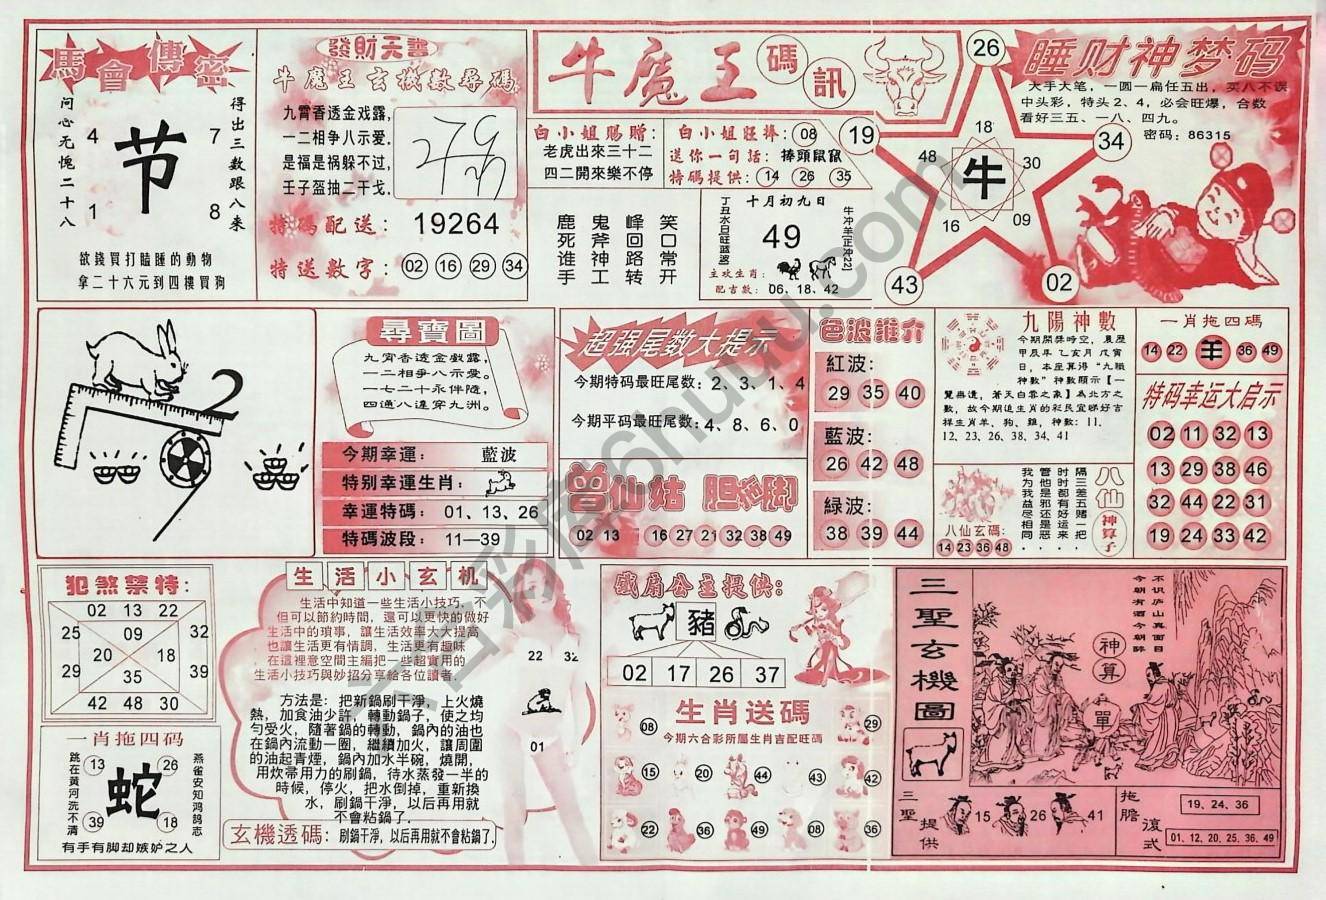 馬會傳密
得出三數跟八来
问心无愧二十八
4
7
节
1
8
欲錢買打瞌睡的動物
拿二十六元到四樓買狗
發財天書
牛魔王玄機數尋碼
九霄香透金戏露,
一二相争八示爱,
是福是祸躲不过,
壬子盔抽二干戈,
特碼配送: 19264
特送數字: 02 16 29 34
牛魔王
碼訊
白小姐赐贈:
老虎出來三十二
四二開來樂不停
白小姐旺捧: 08
送你一句話: 捧頭鼠竄
特碼提供: 14 26 35
笑口常开
峰回路转
鬼斧神工
鹿死谁手
十月初九日
丁丑水日旺蓝波
49
牛冲羊(正沖22)
主攻生肖:
配吉數: 06.18.42
26
19
34
43
02
18
48
30
16
09
牛
睡财神梦码
大手大笔，一圆一扁任五出，买八不误
中头彩，特头2、4，必会旺爆，合数
看好三五、一八、四九。
密码: 86315
2
尋寶圖
九霄香透金戲露,
一二相爭八示愛。
一七二十永伴隨,
四通八達穿九洲。
今期幸運: 藍波
特别幸運生肖:
幸運特碼: 01、13、26
特碼波段: 11—39
超强尾数大提示
今期特码最旺尾数: 2、3、1、4
今期平码最旺尾数: 4、8、6、0
曾仙姑 胆拖脚
02 13 16 27 21 32 38 49
色波推介
紅波:
29 35 40
藍波:
26 42 48
緑波:
38 39 44
九陽神數
今期開獎時空，農歷
甲辰年 乙亥月 戊寅
日，本座算得"九陽
神數"神數顯示【一
為北方之
數，故今期追生肖的彩民宜睇好吉
祥生肖羊、狗、雞，神數: 11.
12、23、26、38、34、41
八仙
神算子
隔三差五赌一把
时时都好运来.
管他是邪还是.
我为我益尽相同
八仙玄碼:
14 23 36 48
一肖拖四碼
14 22 羊 36 49
特码幸运大启示
02 11 32 13
13 29 38 46
32 44 22 31
19 24 33 42
犯煞禁特:
02 13 22
25 09 32
20 18
29 35 39
42 48 30
一肖拖四码
燕雀安知鸿鹄志
跳在黄河洗不清
13 26
蛇
39 18
有手有脚却嫉妒之人
生活小玄机
生活中知道一些生活小技巧，不
但可以節約時間，還可以更快的做好
生活中的瑣事，讓生活效率大大提高
也讓生活更有情調，生活更有趣味
在這裡意空間主編把一些超實用的
生活小技巧與妙招分享給各位讀者.
方法是: 把新鍋刷干淨，上火燒
熱，加食油少許，轉動鍋子，使之均
勻受火，隨著鍋的轉動，鍋內的油也
在鍋內流動一圈，繼續加火，讓周圍
的油起青煙，鍋內加水半碗，燒開，
用炊帚用力的刷鍋，待水蒸發一半的
時候，停火，把水倒掉，重新換
水，刷鍋干淨，以后再用就
不會粘鍋了.
玄機透碼: 刷鍋干淨，以后再用就不會粘鍋了.
22 32
01
鐵扇公主提供:
豬
02 17 26 37
生肖送碼
今期六合彩所屬生肖吉配旺碼
08 29
15 20 44 43 42
22 36 49 08 36
三聖玄機圖
不识庐山真面目
今朝有酒今朝醉
神算
單
三聖提供
15 26 41
拖膽
復式
19、24、36
01、12、20、25、36、49
六合彩库6huuu.com